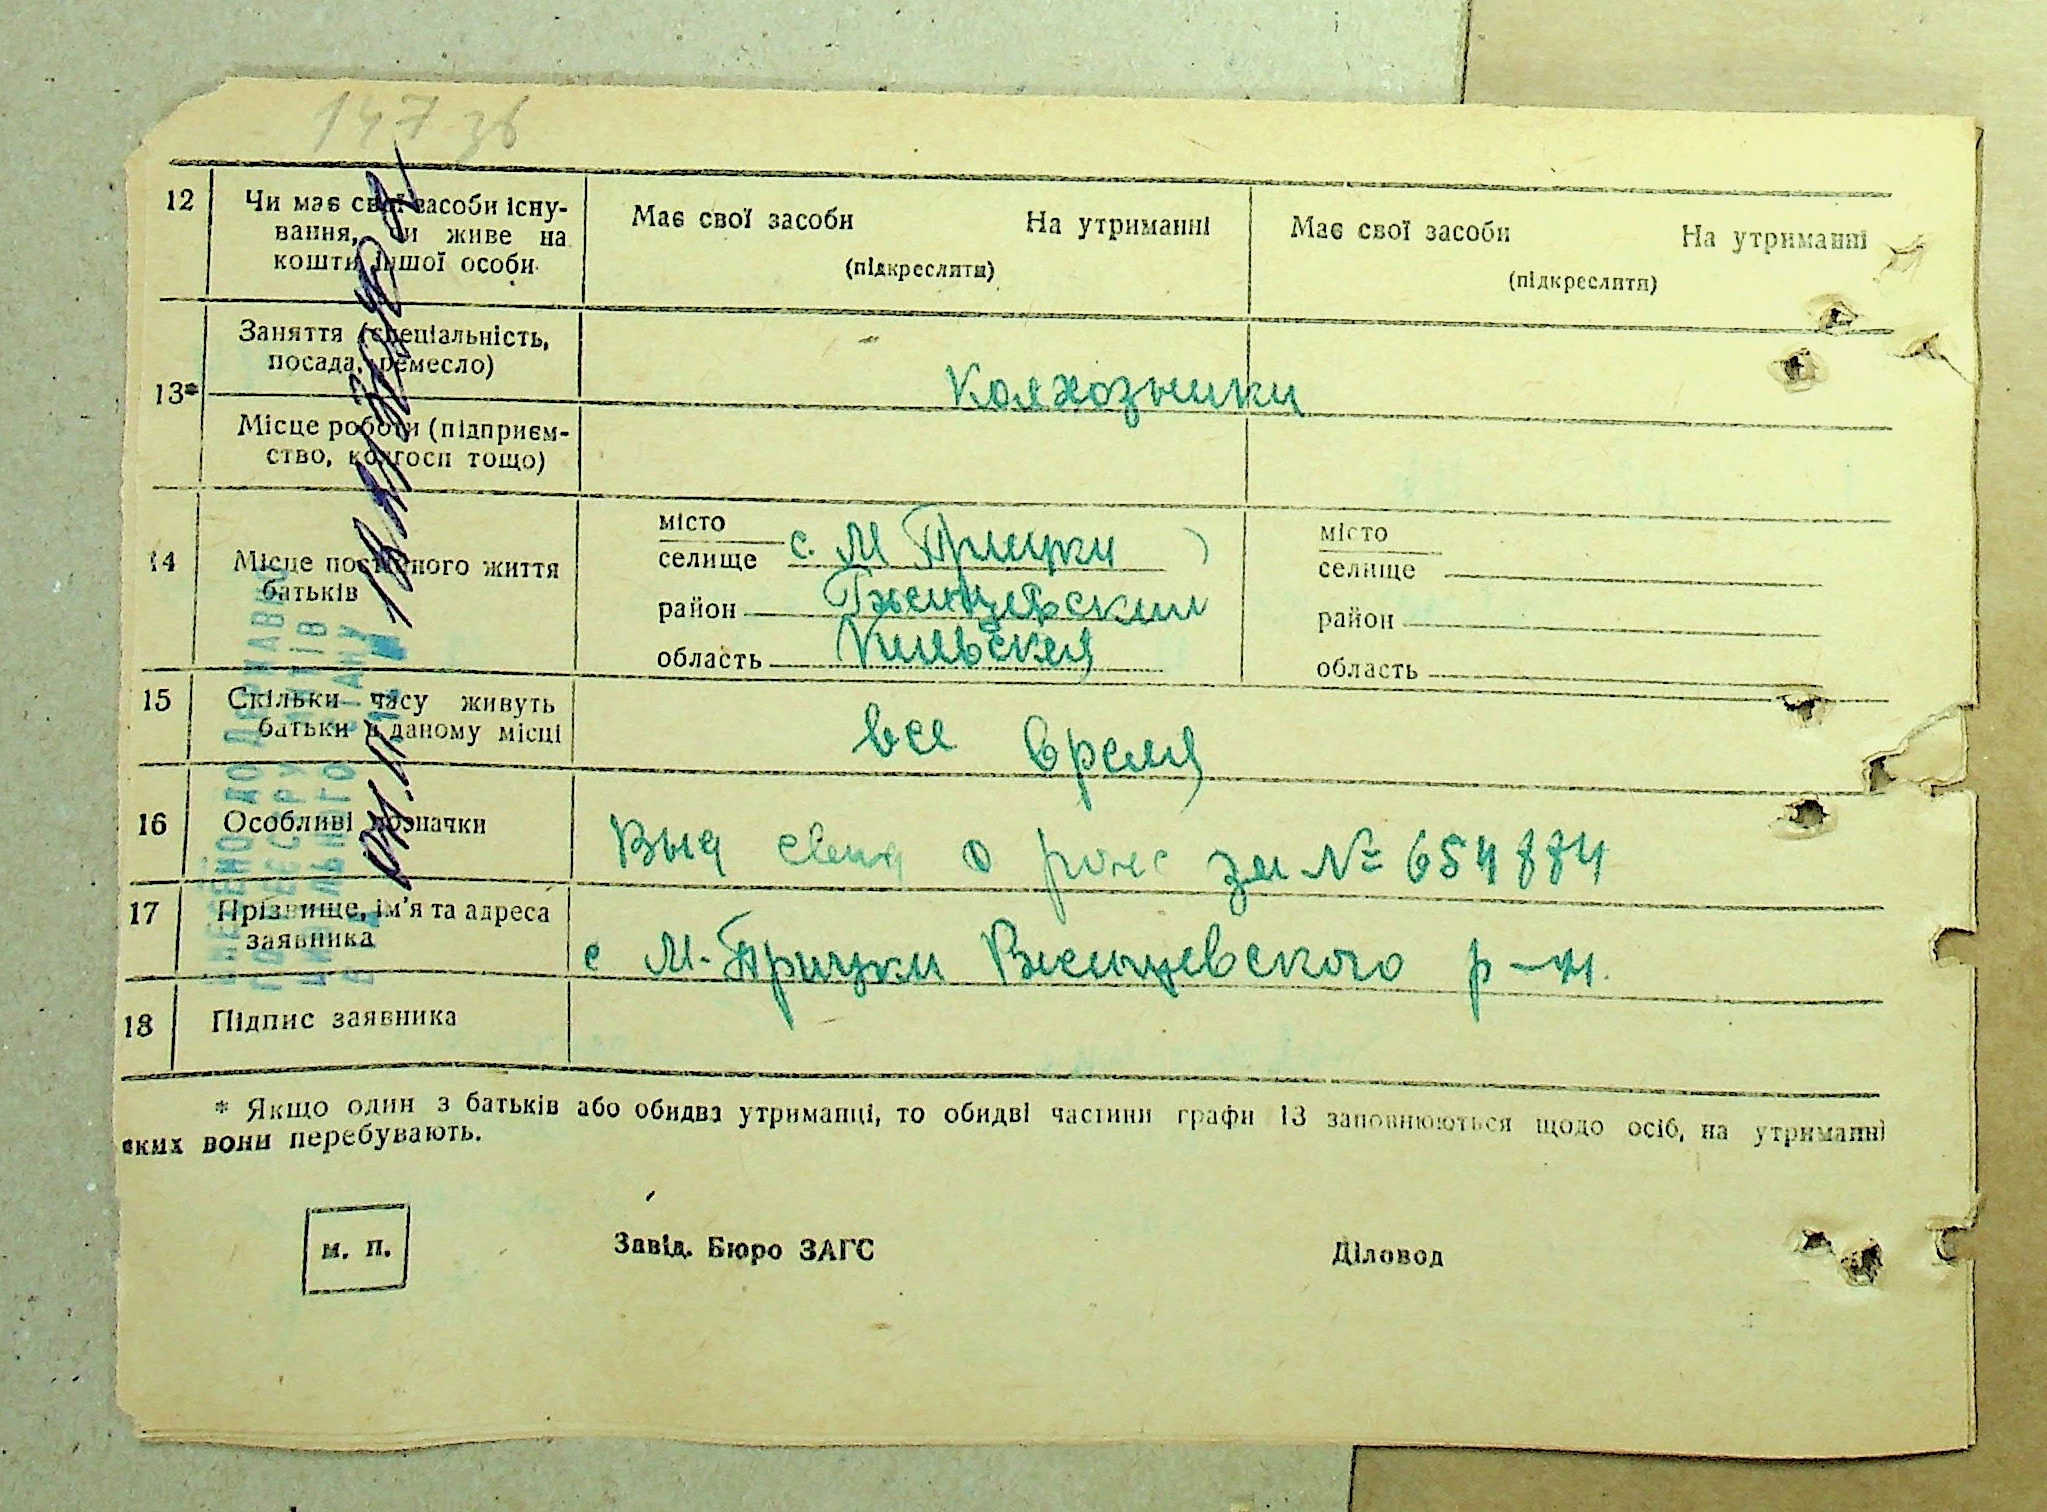 147 зв
12
Чи має свої засоби існу-
вання, чи живе на
кошти іншої особи
Має свої засоби На утриманні
(підкреслити)
Має свої засоби На утриманні
(підкреслити)
13*
Заняття (спеціальність,
посада, ремесло)
Колхозники
Місце роботи (підприєм-
ство, колгосп тощо)
14
Місце постійного життя
батьків
місто
селище с. М Прицки
район
область Киевская
місто
селище
район
область
15
Скільки часу живуть
батьки в даному місці
все время
16
Особливі позначки
Выд свид о рожд зм № 654884
17
Прізвище, ім'я та адреса
заявника
с М-Прицки р-н.
18
Підпис заявника
* Якщо один з батьків або обидва утриманці, то обидві частини графи 13 заповнюються щодо осіб, на утриманні
яких вони перебувають.
м. п.
Завід. Бюро ЗАГС
Діловод